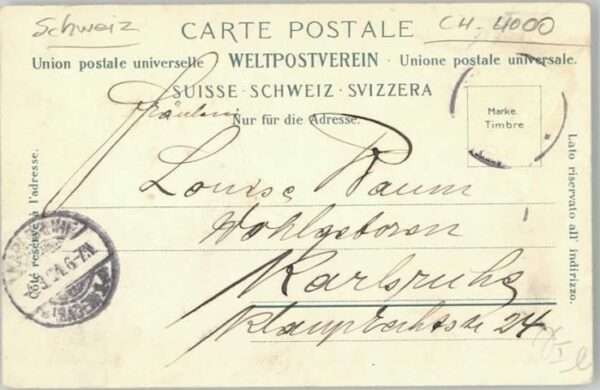 Schweiz
CH-4000
CARTE POSTALE
Union postale universelle · WELTPOSTVEREIN · Unione postale universale.
SUISSE · SCHWEIZ · SVIZZERA
Nur für die Adresse.
Marke.
Timbre
Côté réservé à l'adresse.
Lato riservato all' indirizzo.
Fräulein
Louise Baum
Wohlgeboren
Karlsruhe
24